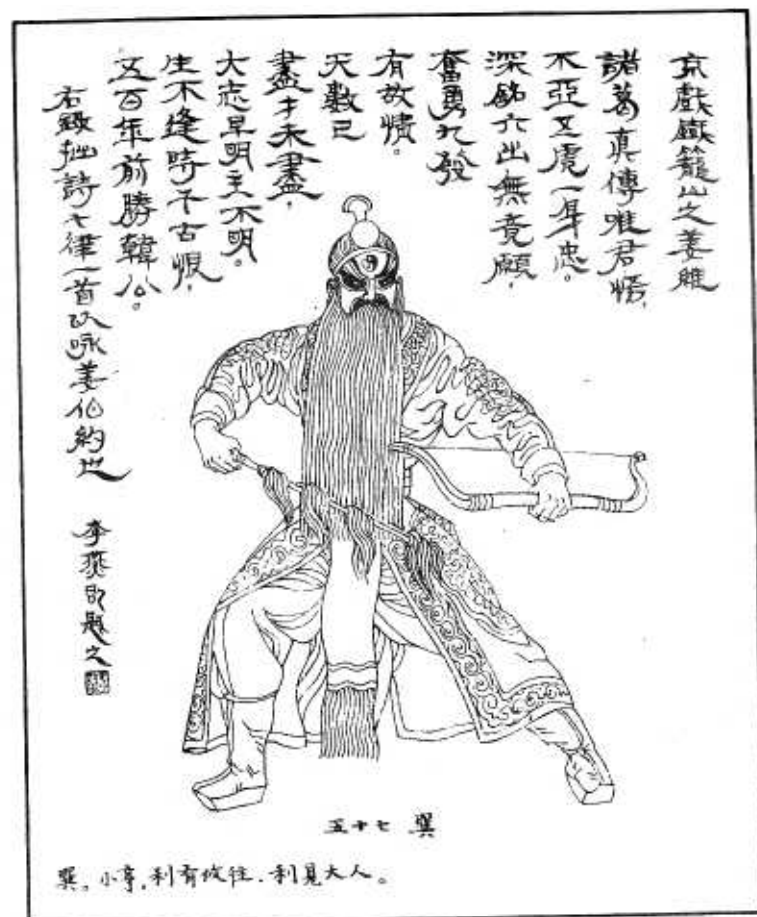 京戲鐵籠山之姜維
諸葛真傳唯君悟，
不亞五虎一身忠。
深銘六出無竟願，
奮勇九發
有故情。
天數已
盡才未盡，
大志早明主不明。
生不逢時千古恨，
五百年前勝韓公。
右錄拙詩七律一首以咏姜伯約也
李燕即題之
五十七 巽
巽。小亨，利有攸往。利見大人。